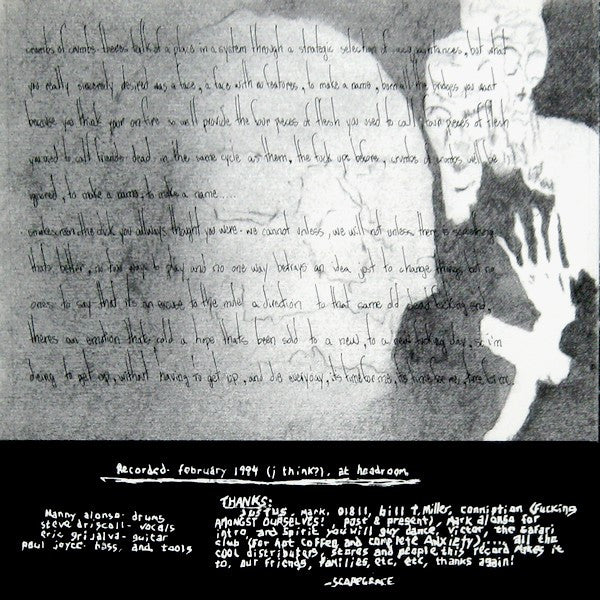 crumbs of crumbs theres talk of a place in a system through a strategic selection of acquaintances, but what
you really sincerely desired was a face, a face with no features, to make a name, burn all the bridges you want
because you think your on fire so will provide the four pieces of flesh you used to call four pieces of flesh
you used to call friends dead in the same cycle as them, the fuck ups before, crumbs of crumbs well be
ignored, to make a name, to make a name.....
the dick you allways thought you were. we cannot unless, we will not unless there is something
thats better, no way to play and no one way betrays an idea just to change things but no
ones to say that its an excuse to a direction to that came old dead fucking end,
theres an emotion thats cold a hope thats been sold to a new, to a new fucking day, so im
dying to get up, without having to get up, and die everyday, its time for me, its time for me, time for me.
Recorded- february 1994 (j think?), at headroom
Manny alonso- drums
steve driscoll- vocals
eric grijalva- guitar
paul joyce- bass, and tools
THANKS:
JUSTUS, Mark, 01811, bill T. Miller, conniption (fucking
AMONGST OURSELVES!, past & present), Mark alonso for
intro, and Spirit you will guy dance, victor, the Safari
club (for hot coffee and complete Anxiety).... all the
cool distributers, stores and people this record makes it
to, our friends, families etc, etc, thanks again!
-SCAPEGRACE